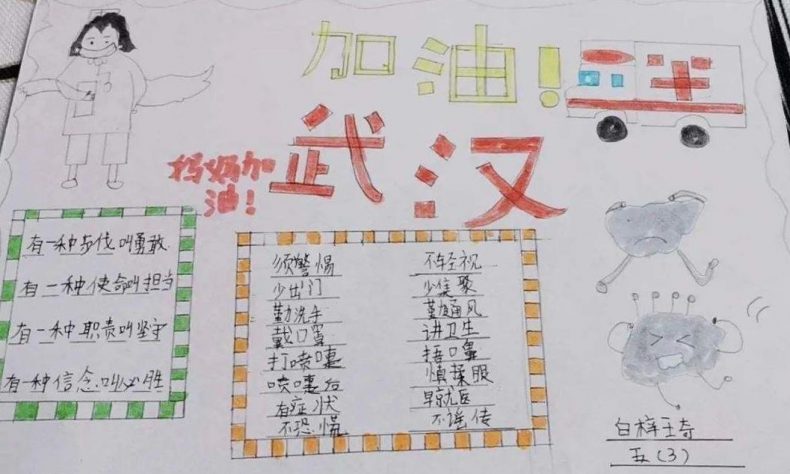 加油!
武汉
妈妈加
油!
有一种步伐叫勇敢
有一种使命叫担当
有一种职责叫坚守
有一种信念叫必胜
须警惕 不轻视
少出门 少集聚
勤洗手 勤通风
戴口罩 讲卫生
打喷嚏 捂口鼻
喷嚏后 慎揉眼
有症状 早就医
不恐慌 不谣传
五(3)